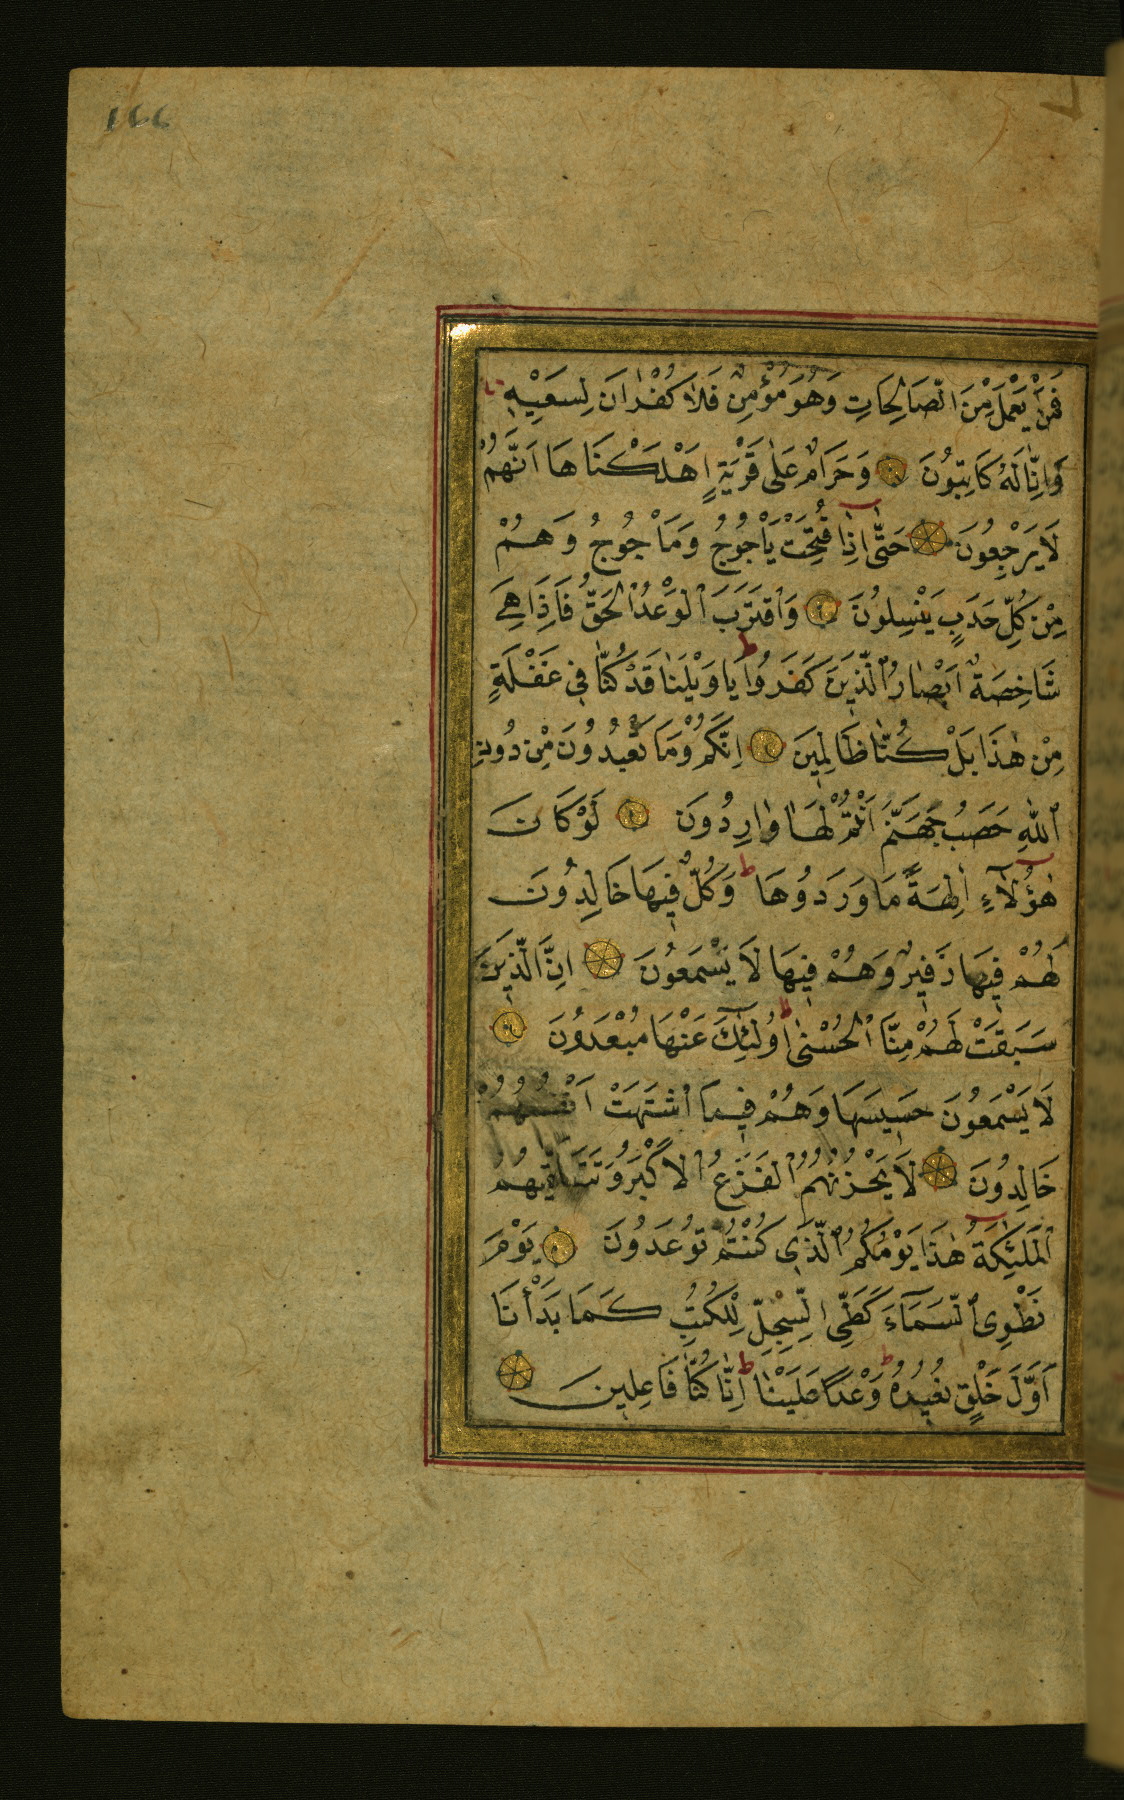 فَمَنْ يَعْمَلْ مِنَ الصَّالِحَاتِ وَهُوَ مُؤْمِنٌ فَلَا كُفْرَانَ لِسَعْيِهِ
وَاِنَّا لَهُ كَاتِبُونَ وَحَرَامٌ عَلٰى قَرْيَةٍ اَهْلَكْنَاهَا اَنَّهُمْ
لَا يَرْجِعُونَ حَتّٰى اِذَا فُتِحَتْ يَأْجُوجُ وَمَأْجُوجُ وَهُمْ
مِنْ كُلِّ حَدَبٍ يَنْسِلُونَ وَاقْتَرَبَ الْوَعْدُ الْحَقُّ فَاِذَا هِيَ
شَاخِصَةٌ اَبْصَارُ الَّذِينَ كَفَرُوا ط يَا وَيْلَنَا قَدْ كُنَّا فِي غَفْلَةٍ
مِنْ هٰذَا بَلْ كُنَّا ظَالِمِينَ اِنَّكُمْ وَمَا تَعْبُدُونَ مِنْ دُونِ
اللّٰهِ حَصَبُ جَهَنَّمَ اَنْتُمْ لَهَا وَارِدُونَ لَوْ كَانَ
هٰؤُلَآءِ اٰلِهَةً مَا وَرَدُوهَا ط وَكُلٌّ فِيهَا خَالِدُونَ
لَهُمْ فِيهَا زَفِيرٌ وَهُمْ فِيهَا لَا يَسْمَعُونَ اِنَّ الَّذِينَ
سَبَقَتْ لَهُمْ مِنَّا الْحُسْنٰى اُولٰٓئِكَ عَنْهَا مُبْعَدُونَ
لَا يَسْمَعُونَ حَسِيسَهَا وَهُمْ فِيمَا اشْتَهَتْ اَنْفُسُهُمْ
خَالِدُونَ لَا يَحْزُنُهُمُ الْفَزَعُ الْاَكْبَرُ وَتَتَلَقّٰيهُمُ
الْمَلٰٓئِكَةُ هٰذَا يَوْمُكُمُ الَّذِي كُنْتُمْ تُوعَدُونَ يَوْمَ
نَطْوِي السَّمَآءَ كَطَيِّ السِّجِلِّ لِلْكُتُبِ كَمَا بَدَأْنَا
اَوَّلَ خَلْقٍ نُعِيدُهُ ط وَعْدًا عَلَيْنَا ط اِنَّا كُنَّا فَاعِلِينَ